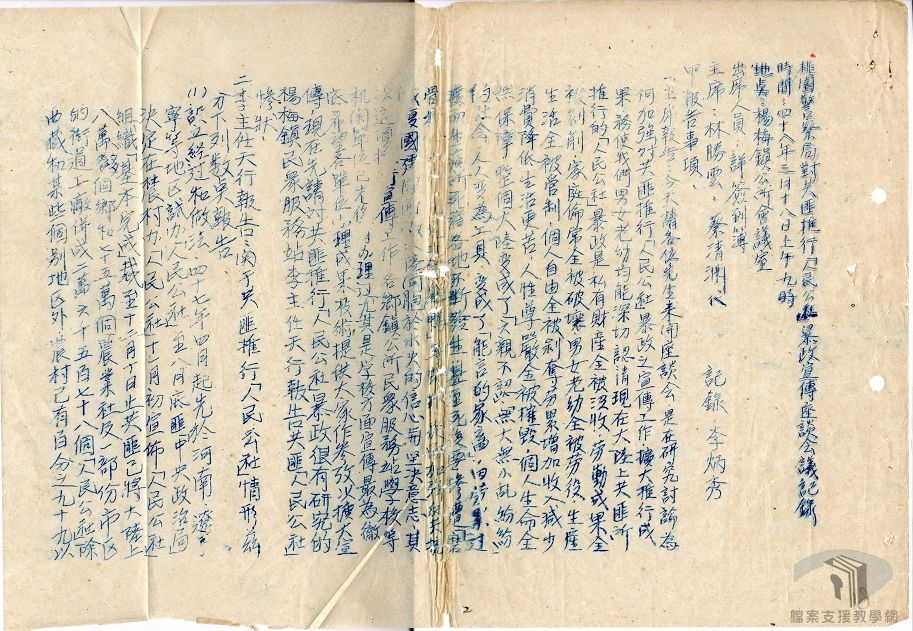 桃園警察局對共匪推行「人民公社」暴政宣傳座談會議記錄
時間：四十八年三月十八日上午九時
地點：楊梅鎮公所會議室
出席人員：詳簽到簿
主席：林勝雲 蔡清淵代 記錄 李炳秀
甲、報告事項
一、主席報告：今天請各位先生來開座談會是在研究討論為
何加強對共匪推行「人民公社」暴政之宣傳工作擴大推行成
果務使我們男女老幼均能深切認清現在大陸上共匪所
推行的「人民公社」暴政是私有財產全被沒收、勞動成果全
被剝削、家庭倫常全被破壞、男女老幼全被勞役、生產
生活全被管制、個人自由全被剝奪、勞累增加收入減少
消費降低生活更苦、人性尊嚴全被摧毀、個人生命全
無保障、整個大陸變成了六親不認無大無小亂紛紛
的社會、人人變為工具、變成了「能言的家畜」
骨
復國建 水火的信心與堅決意志、其
次這個 宣傳工作各鄉鎮公所民眾服務站學校等
机関單位已在 辦理過尤其是學校方面宣傳最為徹
底希望各單位 理成果技術提供大家作參攷以擴大宣
傳、現在先請對共匪推行「人民公社」暴政很有研究的
楊梅鎮民眾服務站李主任天行報告共匪「人民公社」
慘狀。
二、李主任天行報告：関于共匪推行「人民公社」情形茲
分下列數點報告。
(1)設立經过和做法：四十七年四月起先於河南、遼
寧等地區試办「人民公社」至八月底匪中央政治局
決定在農村办「人民公社」十二月初宣佈「人民公社
組織」基本完成截至十二月十日止共匪已將大陸上
八萬餘個鄉和七十五萬個農業社及一部份市區
的街道上擴併成二萬六千五百七十八個「人民公社」除
西藏和某些個別地区外農村已有百分之九十九以
2
檔案支援教學網